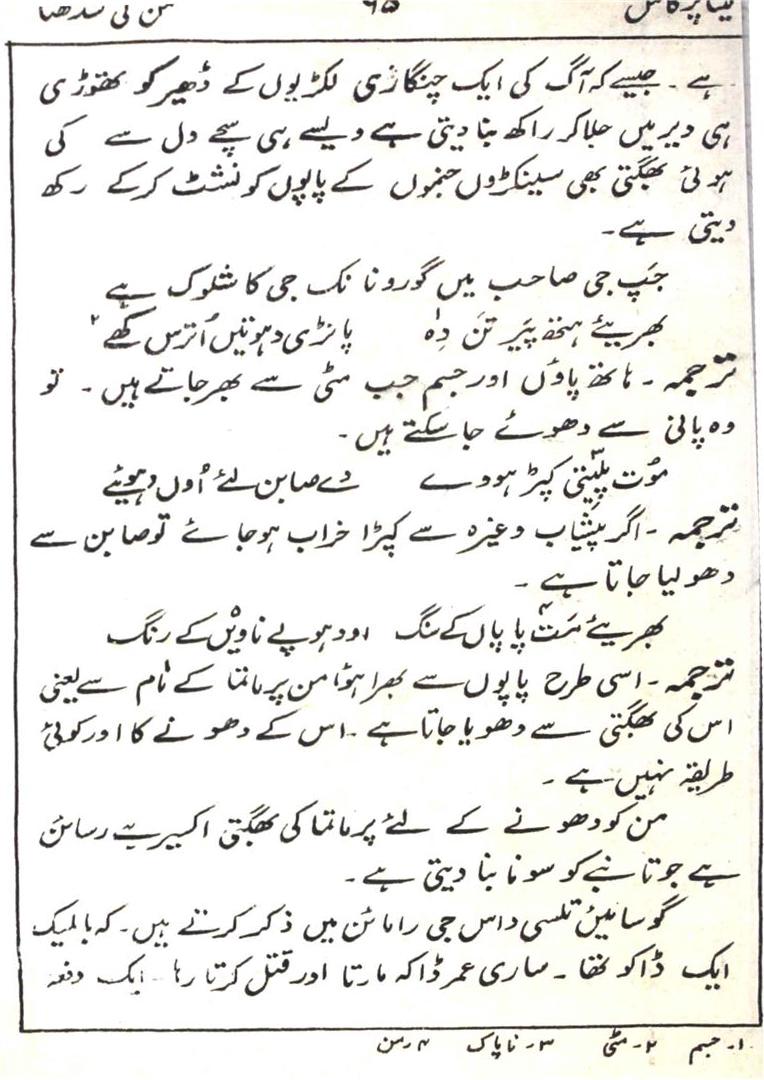 گیتا پرکاش ۹۵ من کی شدھی
ہے ۔ جیسے کہ آگ کی ایک چنگاڑی لکڑیوں کے ڈھیر کو تھوڑی
ہی دیر میں جلا کر راکھ بنا دیتی ہے ویسے ہی سچے دل سے کی
ہوئی بھگتی بھی سینکڑوں جنموں کے پاپوں کو نشٹ کرکے رکھ
دیتی ہے۔
جَپ جی صاحب میں گورو نانک جی کا شلوک ہے
بھریئے ہتھ پَیر تنَ دِہ پانڑی دہوتیں اُترس کھے ۲
ترجمہ ۔ ہاتھ پاؤں اور جسم جب مٹی سے بھر جاتے ہیں ۔ تو
وہ پانی سے دھوئے جاسکتے ہیں ۔
مُوت پلیتی کپڑ ہووے دے صابن لئے اُول دہوئیے
ترجمہ ۔ اگر پیشاب وغیرہ سے کپڑا خراب ہوجائے تو صابن سے
دھو لیا جاتا ہے ۔
بھریئے مَت پاپاں کے سنگ اودہوپے ناویں کے رنگ
ترجمہ ۔ اسی طرح پاپوں سے بھرا ہوُا من پرماتما کے نام سے یعنی
اس کی بھگتی سے دھویا جاتا ہے ۔ اس کے دھونے کا اور کوئی
طریقہ نہیں ہے ۔
من کو دھونے کے لئے پرماتما کی بھگتی اکسیر ہے رسائن
ہے جو تانبے کو سونا بنا دیتی ہے ۔
گوسائیں تلسی داس جی رامائن میں ذکر کرتے ہیں ۔ کہ بالمیک
ایک ڈاکو تھا ۔ ساری عمر ڈاکہ مارتا اور قتل کرتا رہا ۔ ایک دفعہ
۱۔ جسم ۲۔ مٹی ۳۔ ناپاک ۴۔ من